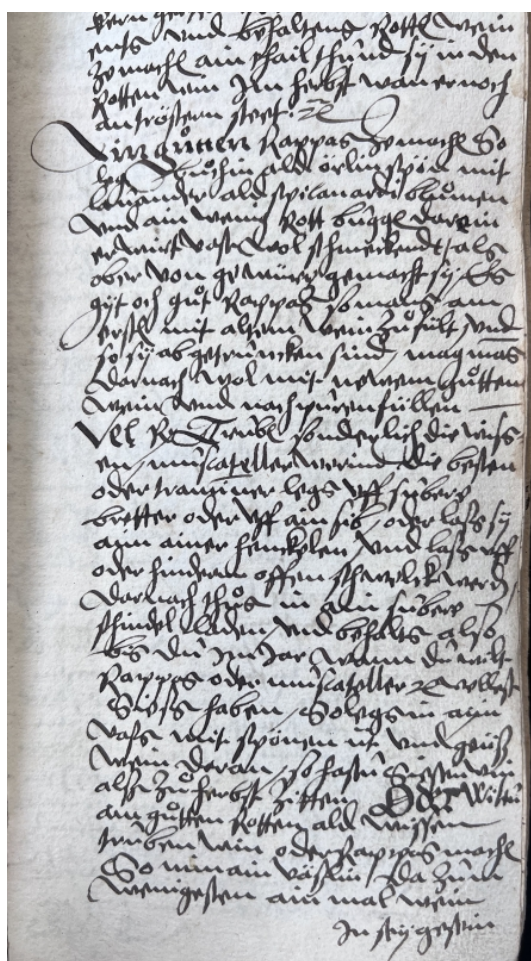 kern
ents vnd behaltens Rottl wein
zemachl ain thail thund sy in den
Rotten wein Im herbst wan er noch
an tröstern steet. ⁊c
Ain guͦtten Rappas zemachl So
leg buͦchin ald örlin spön mit
lauander ald spicanardi bluͦmen
vnd ain wenig Rott buggl darein
er wirt vast wol schmeckendt / als
ober von gewürz gemacht sy / Es
gyt och guͦt Rappas so mans am
ersten mit altem wein zuͦ fült / vnd
so sy ab getruncken sind / mag mas
darnach wol mit newem guͦtten
wein vnd nach füllen
Vel Re Trubl sonderlich die wiss
en / muscateller werind die besten
oder traminer legs vff subere
bretter oder vff ain sib / oder lass sy
ain ainer henckylen / vnd lass vff
oder hinderm offen schwelck werdn
darnach thuͦs in ain subere
schindel laden / vnd behalts also
bis du Im Jar wann du wilt
Rappas oder muscateller ⁊c wellest
Suess haben / So legs in ain
vass mit spönen in vnd geüss
wein daran / so hastu Suessen wein
als zuͦ herbst zitten Oder Wiltu
ain guͦtten Rotten ald wissen
truͦben wein oder Rappas machl
So nim ain väslin da zum
wenigesten ain mal wein
In sey gesein